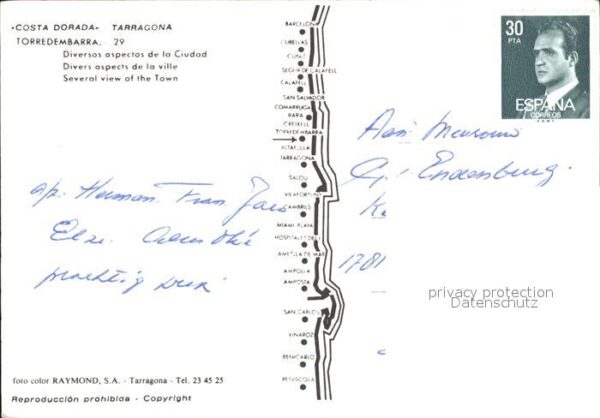 «COSTA DORADA» - TARRAGONA
TORREDEMBARRA. 29
Diversos aspectos de la Ciudad
Divers aspects de la ville
Several view of the Town
BARCELONA
CUBELLAS
CUNIT
SEGUR DE CALAFELL
CALAFELL
SAN SALVADOR
COMARRUGA
BARA
CREIXELL
TORREDEMBARRA
ALTAFULLA
TARRAGONA
SALOU
VILAFORTUNY
CAMBRILS
MIAMI PLAYA
HOSPITALET DEL I.
AMETLLA DE MAR
AMPOLLA
AMPOSTA
SAN CARLOS
VINAROZ
BENICARLO
PEÑISCOLA
30
PTA
ESPAÑA
CORREOS
Aan
Endenburg
K
1781
Herman. Fran.
Else.
prachtig
privacy protection
Datenschutz
foto color RAYMOND, S.A. - Tarragona - Tel. 23 45 25
Reproducción prohibida - Copyright